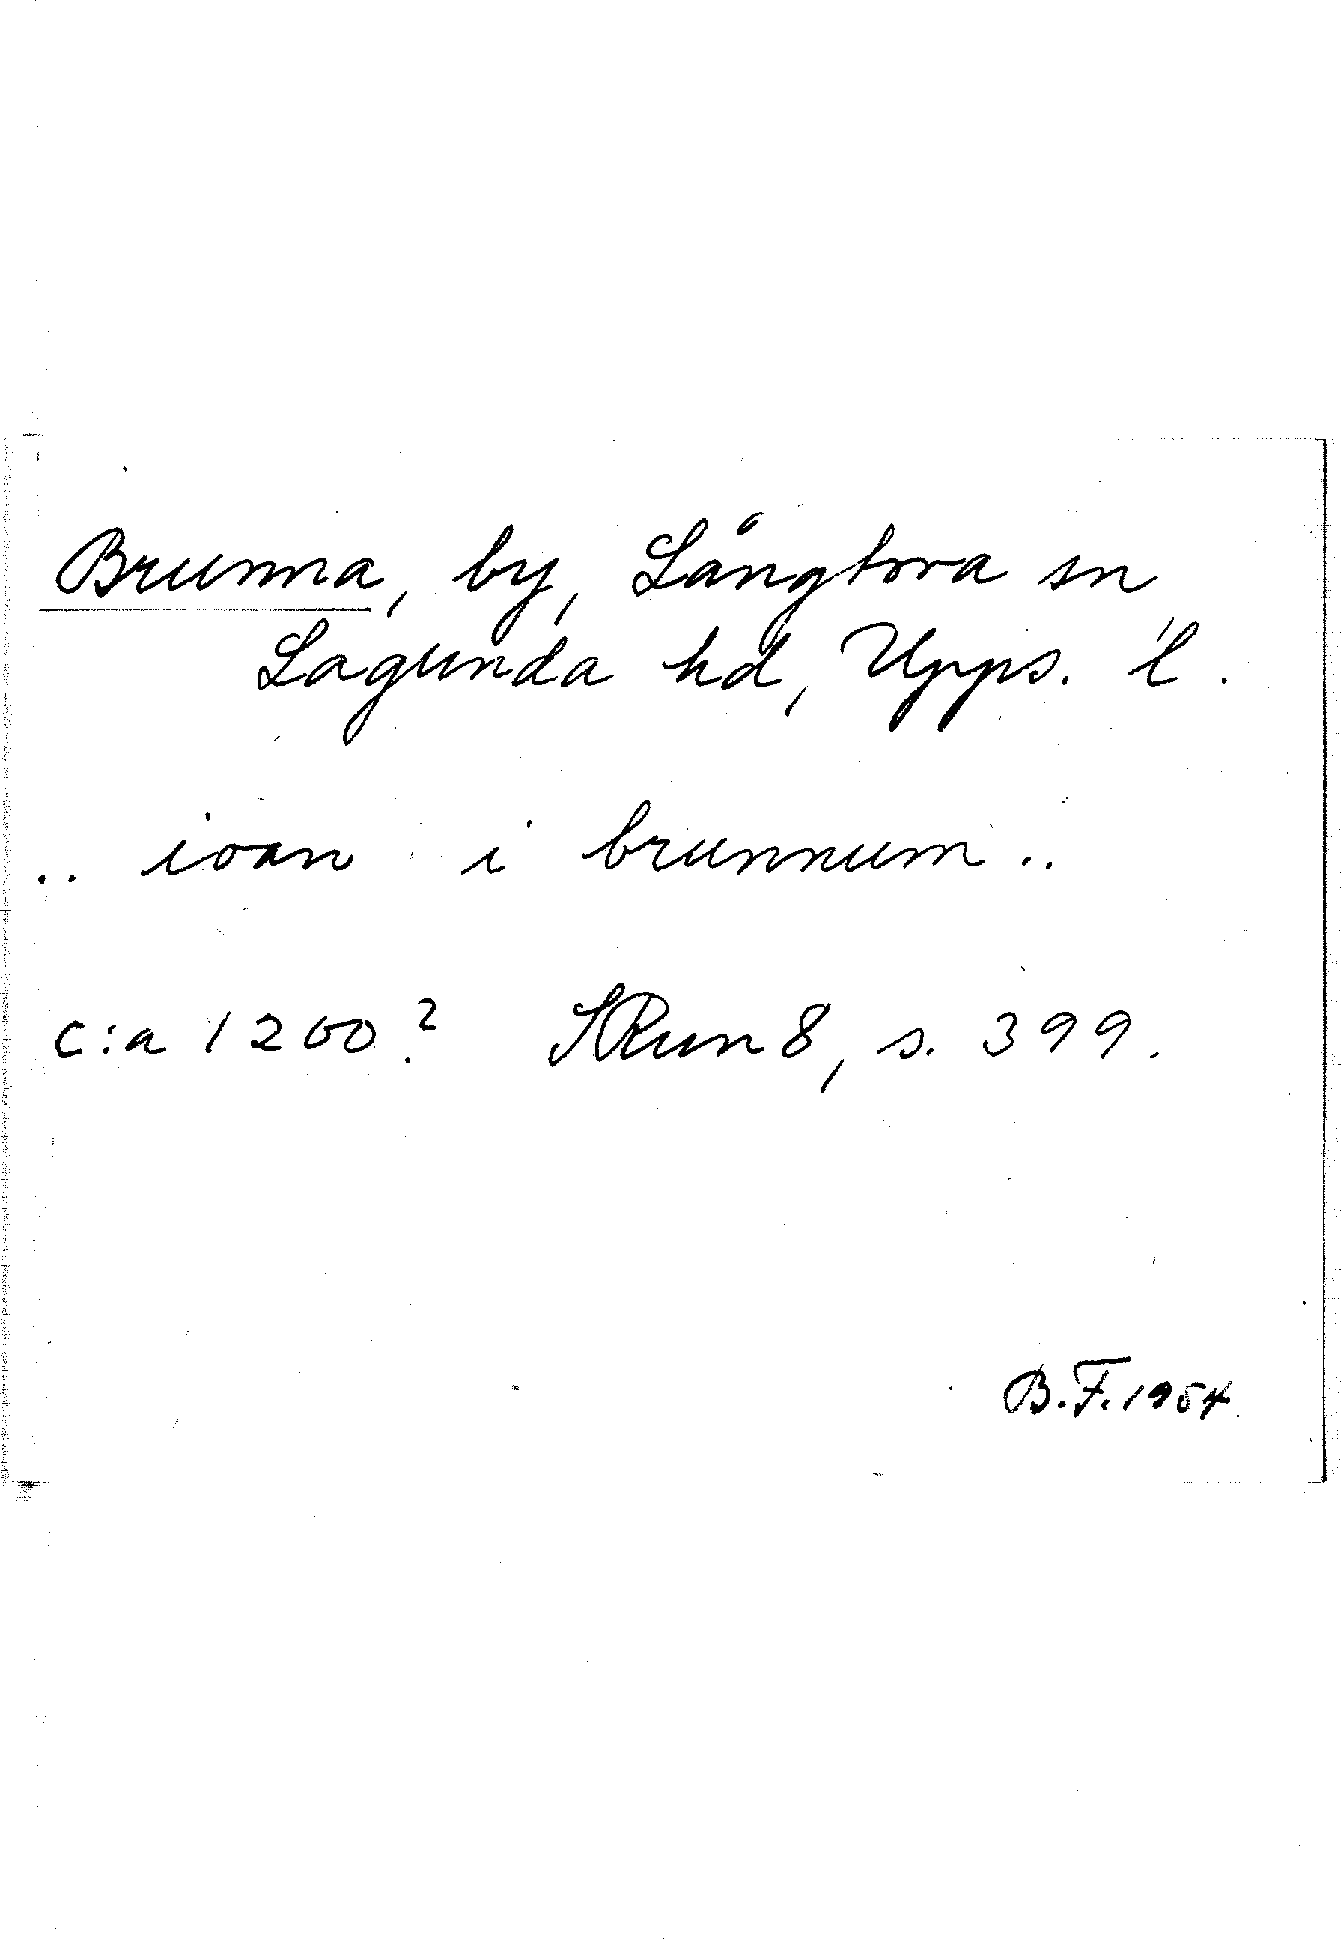 Brunna, by, Långtora sn,
Lagunda hd, Upps. l.
.. ioan i brunnum ..
c:a 1200? SRun 8, s. 399.
B.F. 1954